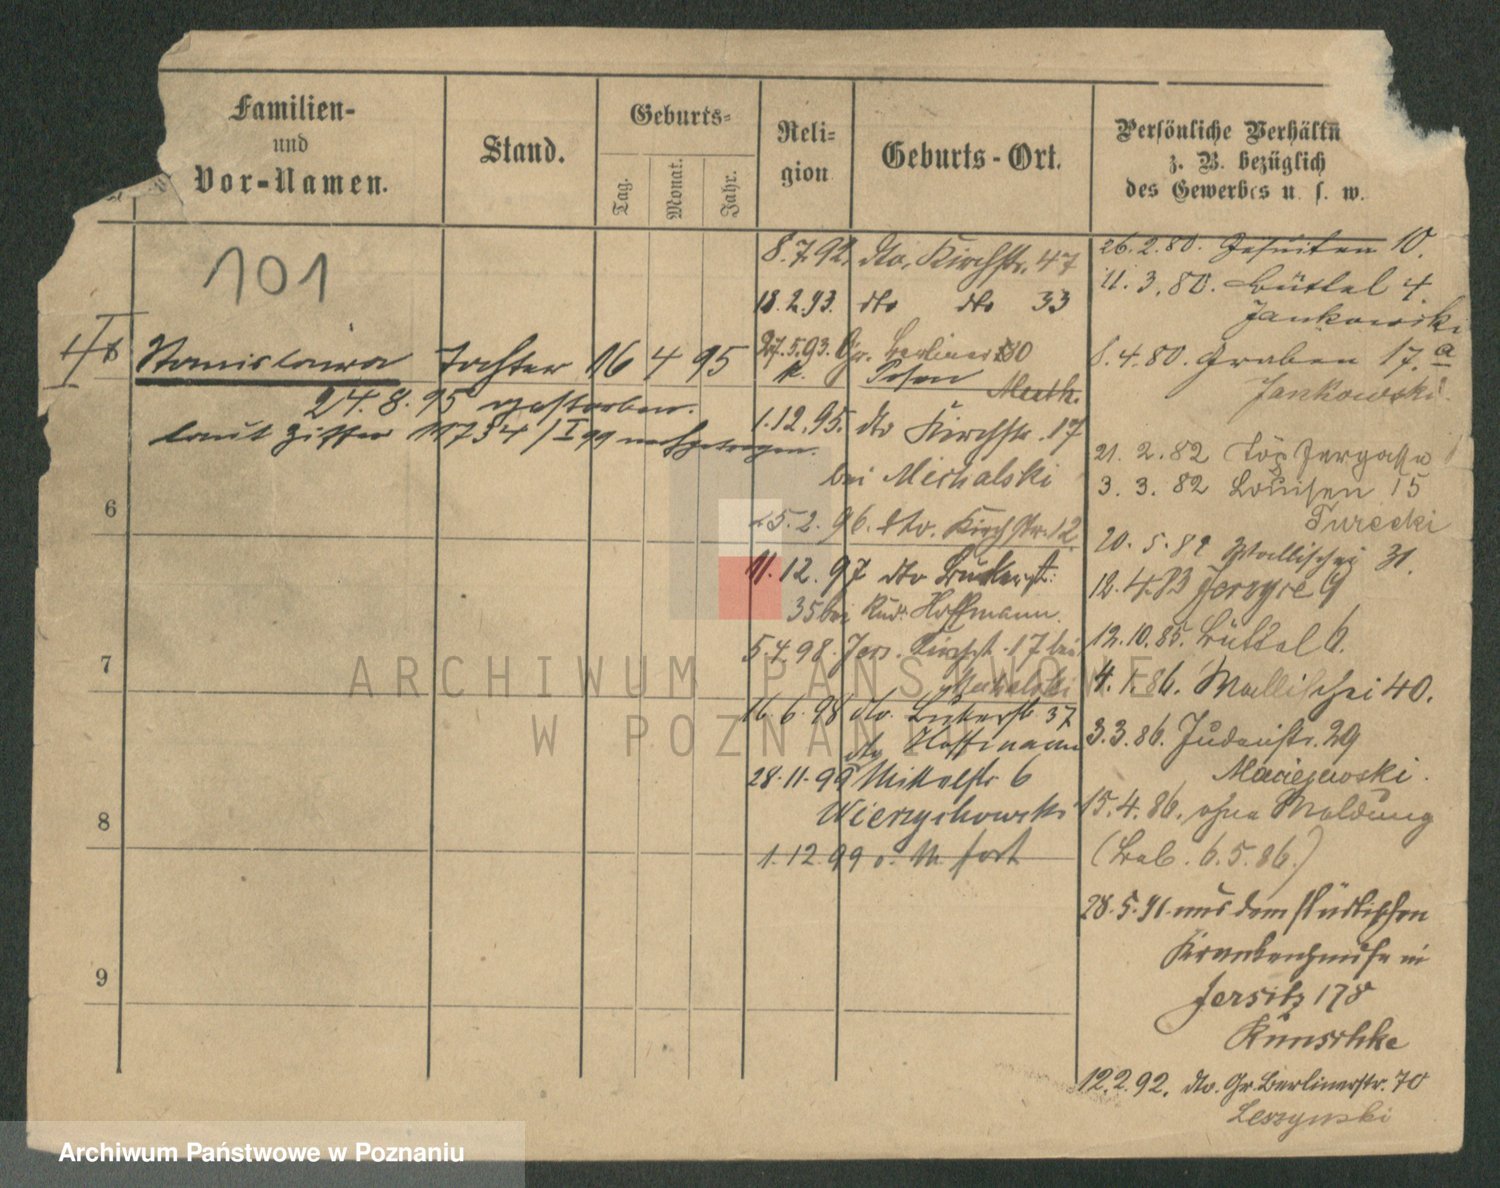 Familien-
und
Vor-Namen.
Stand.
Geburts-
Tag.
Monat.
Jahr.
Reli-
gion
Geburts-Ort.
Persönliche Verhältn
z. B. bezüglich
des Gewerbes u. s. w.
101
Stanislawa Tochter 16 4 95
24.8.95 gestorben.
laut Ziffer 11734/I 99 nachgetragen.
6
7
8
9
8.7.92. dto. Kirchstr. 47
18.2.93. dto dto 33
27.5.93. Gr. Berliner
k. Posen
1.12.95. dto Kirchstr. 17
bei Michalski
5.2.96. dto. Kirchstr. 12
11.12.97 dto
35 bei Rud. Hoffmann.
5.4.98. Jers. Kirchst. 17 bei
Michalski
16.6.98 dto. 37
dto Hoffmann
28.11.99 Mittelstr 6
1.12.99 o. M. fort
26.2.80. Jesuiten 10.
11.3.80. Büttel 4
Jankowski
8.4.80. Graben 17.a
Jankowski.
21.2.82 Töpfergasse
3.3.82 Louisen 15
Turecki
20.5.82 Wallischei 31.
12.4.83 Jerzyce 9
12.10.85. Büttel 6.
4.1.86. Wallischei 40.
3.3.86. Judenstr. 29
Maciejewski.
15.4.86. ohne Meldung
(6.5.86.)
28.5.91. aus dem städtischen
Krankenhause in
Jersitz 178
Kunschke
12.2.92. dto. Gr. Berlinerstr. 70
Leszynski
ARCHIWUM PAŃSTWOWE
W POZNANIU
Archiwum Państwowe w Poznaniu